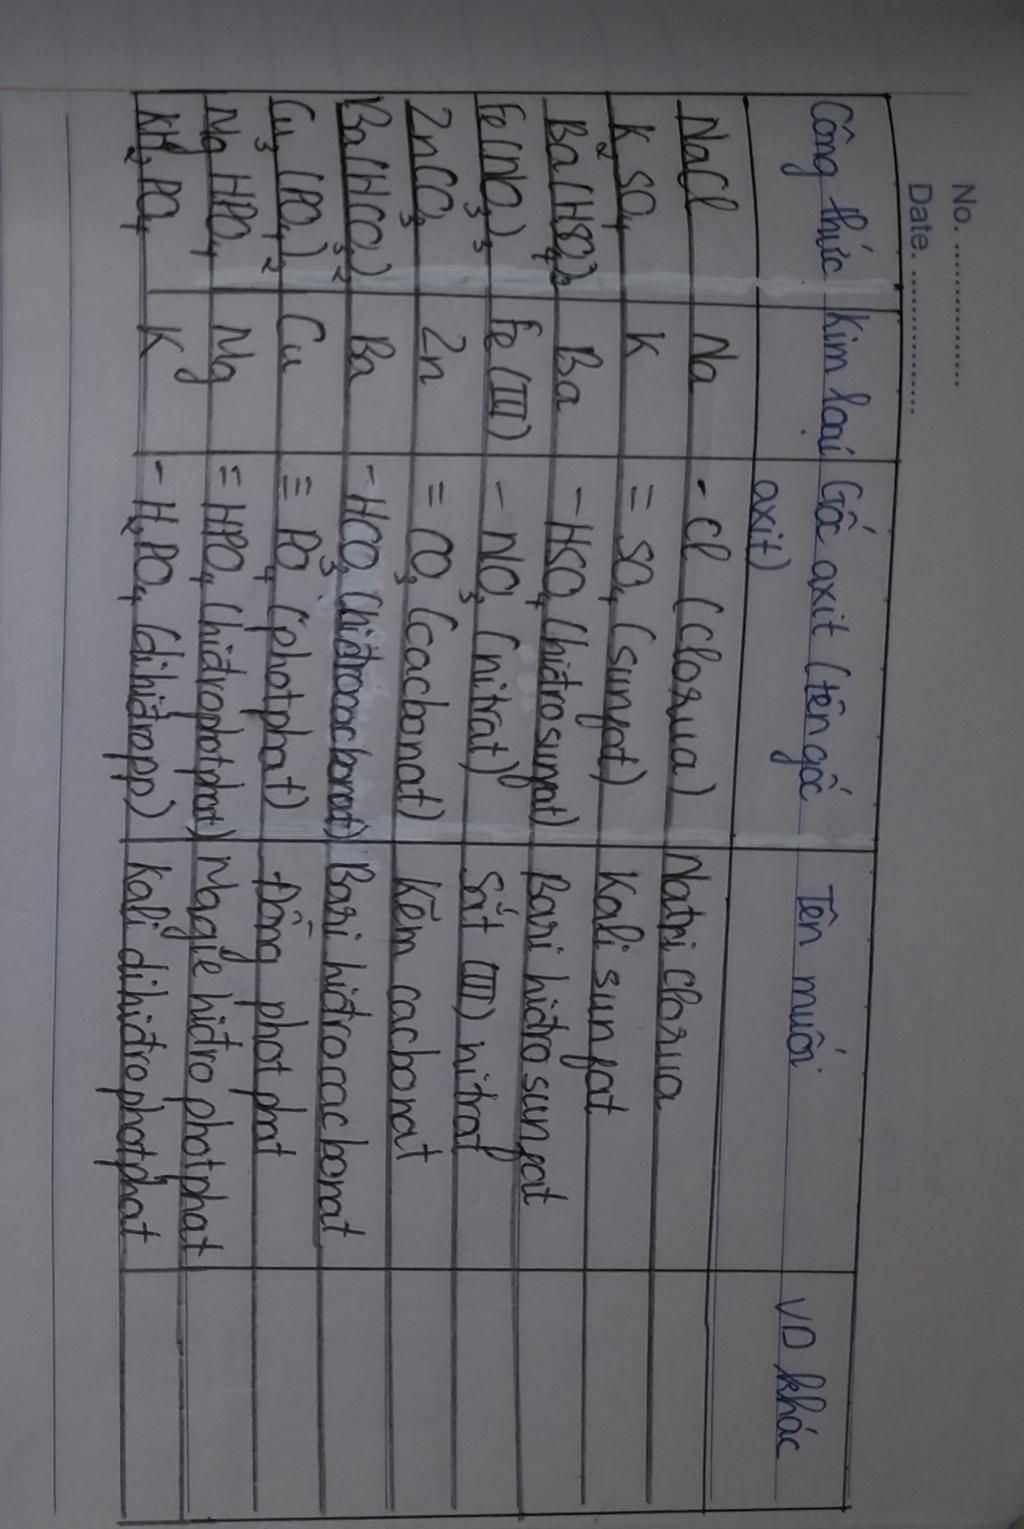 No. ................
Date. ................
Công thức Kim loại Gốc axit (tên gốc axit) Tên muối VD khác
NaCl Na - Cl (clorua) Natri clorua
K₂SO₄ K = SO₄ (sunfat) Kali sunfat
Ba(HSO₄)₂ Ba - HSO₄ (hiđrosunfat) Bari hiđro sunfat
Fe(NO₃)₃ Fe (III) - NO₃ (nitrat) Sắt (III) nitrat
ZnCO₃ Zn = CO₃ (cacbonat) Kẽm cacbonat
Ba(HCO₃)₂ Ba - HCO₃ (hiđrocacbonat) Bari hiđro cacbonat
Cu₃(PO₄)₂ Cu ≡ PO₄ (photphat) Đồng photphat
MgHPO₄ Mg = HPO₄ (hiđrophotphat) Magie hiđro photphat
KH₂PO₄ K - H₂PO₄ (đihiđropp) Kali đihiđro photphat